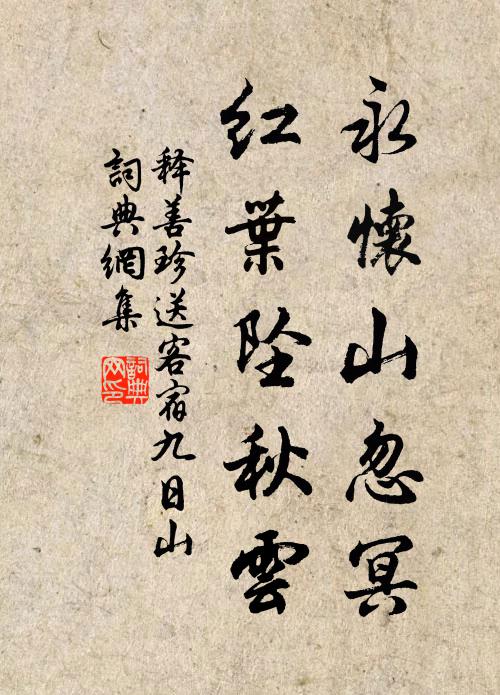 永懷山忽冥
紅葉墜秋雲
释善珍送客宿九日山
詞典網集
詞典
网印